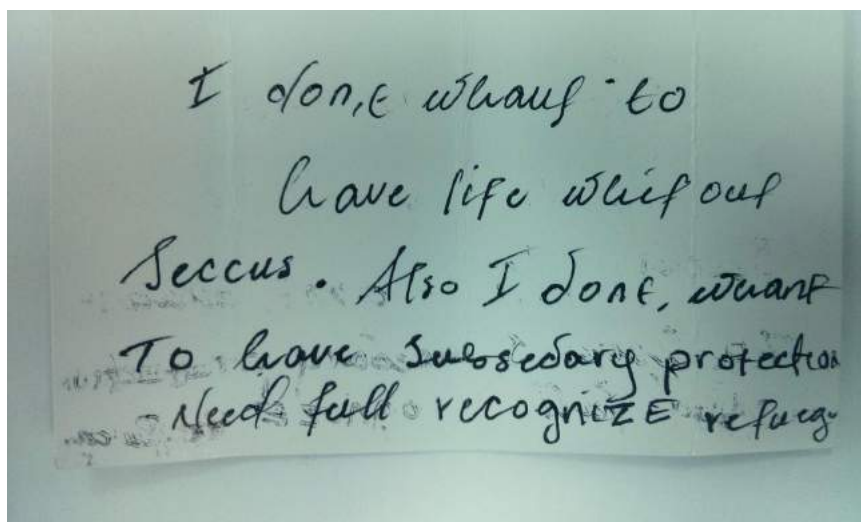 I don,t whant to
have life whitout
Seccus. Also I dont, whant
To have Subsedary protection
Need full recognizE refueg